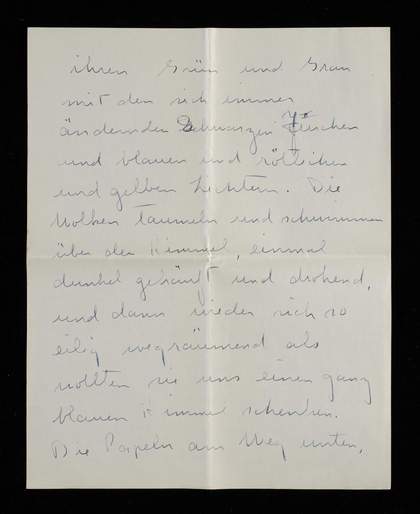 ihren Grün und Grau
mit den sich immer
ändernden Schwarzen
und blauen und rötlichen
und gelben Lichtern. Die
Wolken taumeln und schwimmen
über den Himmel, einmal
dunkel gehäuft und drohend,
und dann wieder sich so
eilig wegräumend als
wollten sie uns einen ganz
blauen Himmel schenken.
Die Papeln am Weg unten,